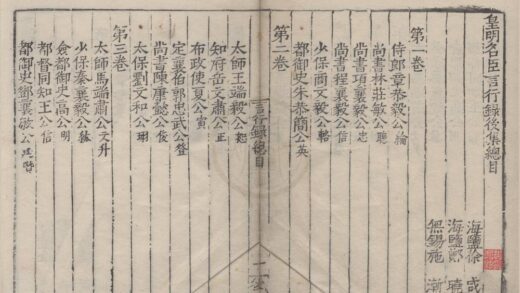 皇明名臣言行錄後集總目
海鹽徐
海鹽鄭 曉
無錫施 漸
第一卷
侍郎章恭毅公綸
尚書林莊敏公聰
尚書項襄毅公忠
尚書程襄毅公信
少保商文毅公輅
都御史朱恭簡公英
第二卷
言行錄總目
太師王端毅公恕
知府岳文肅公正
布政使夏公寅
定襄伯郭忠武公登
尚書陳康懿公俊
太保劉文和公珝
第三卷
太師馬端肅公文升
少保秦襄毅公紘
僉都御史高公明
都督同知王公信
都御史鄧襄敏公廷瓚